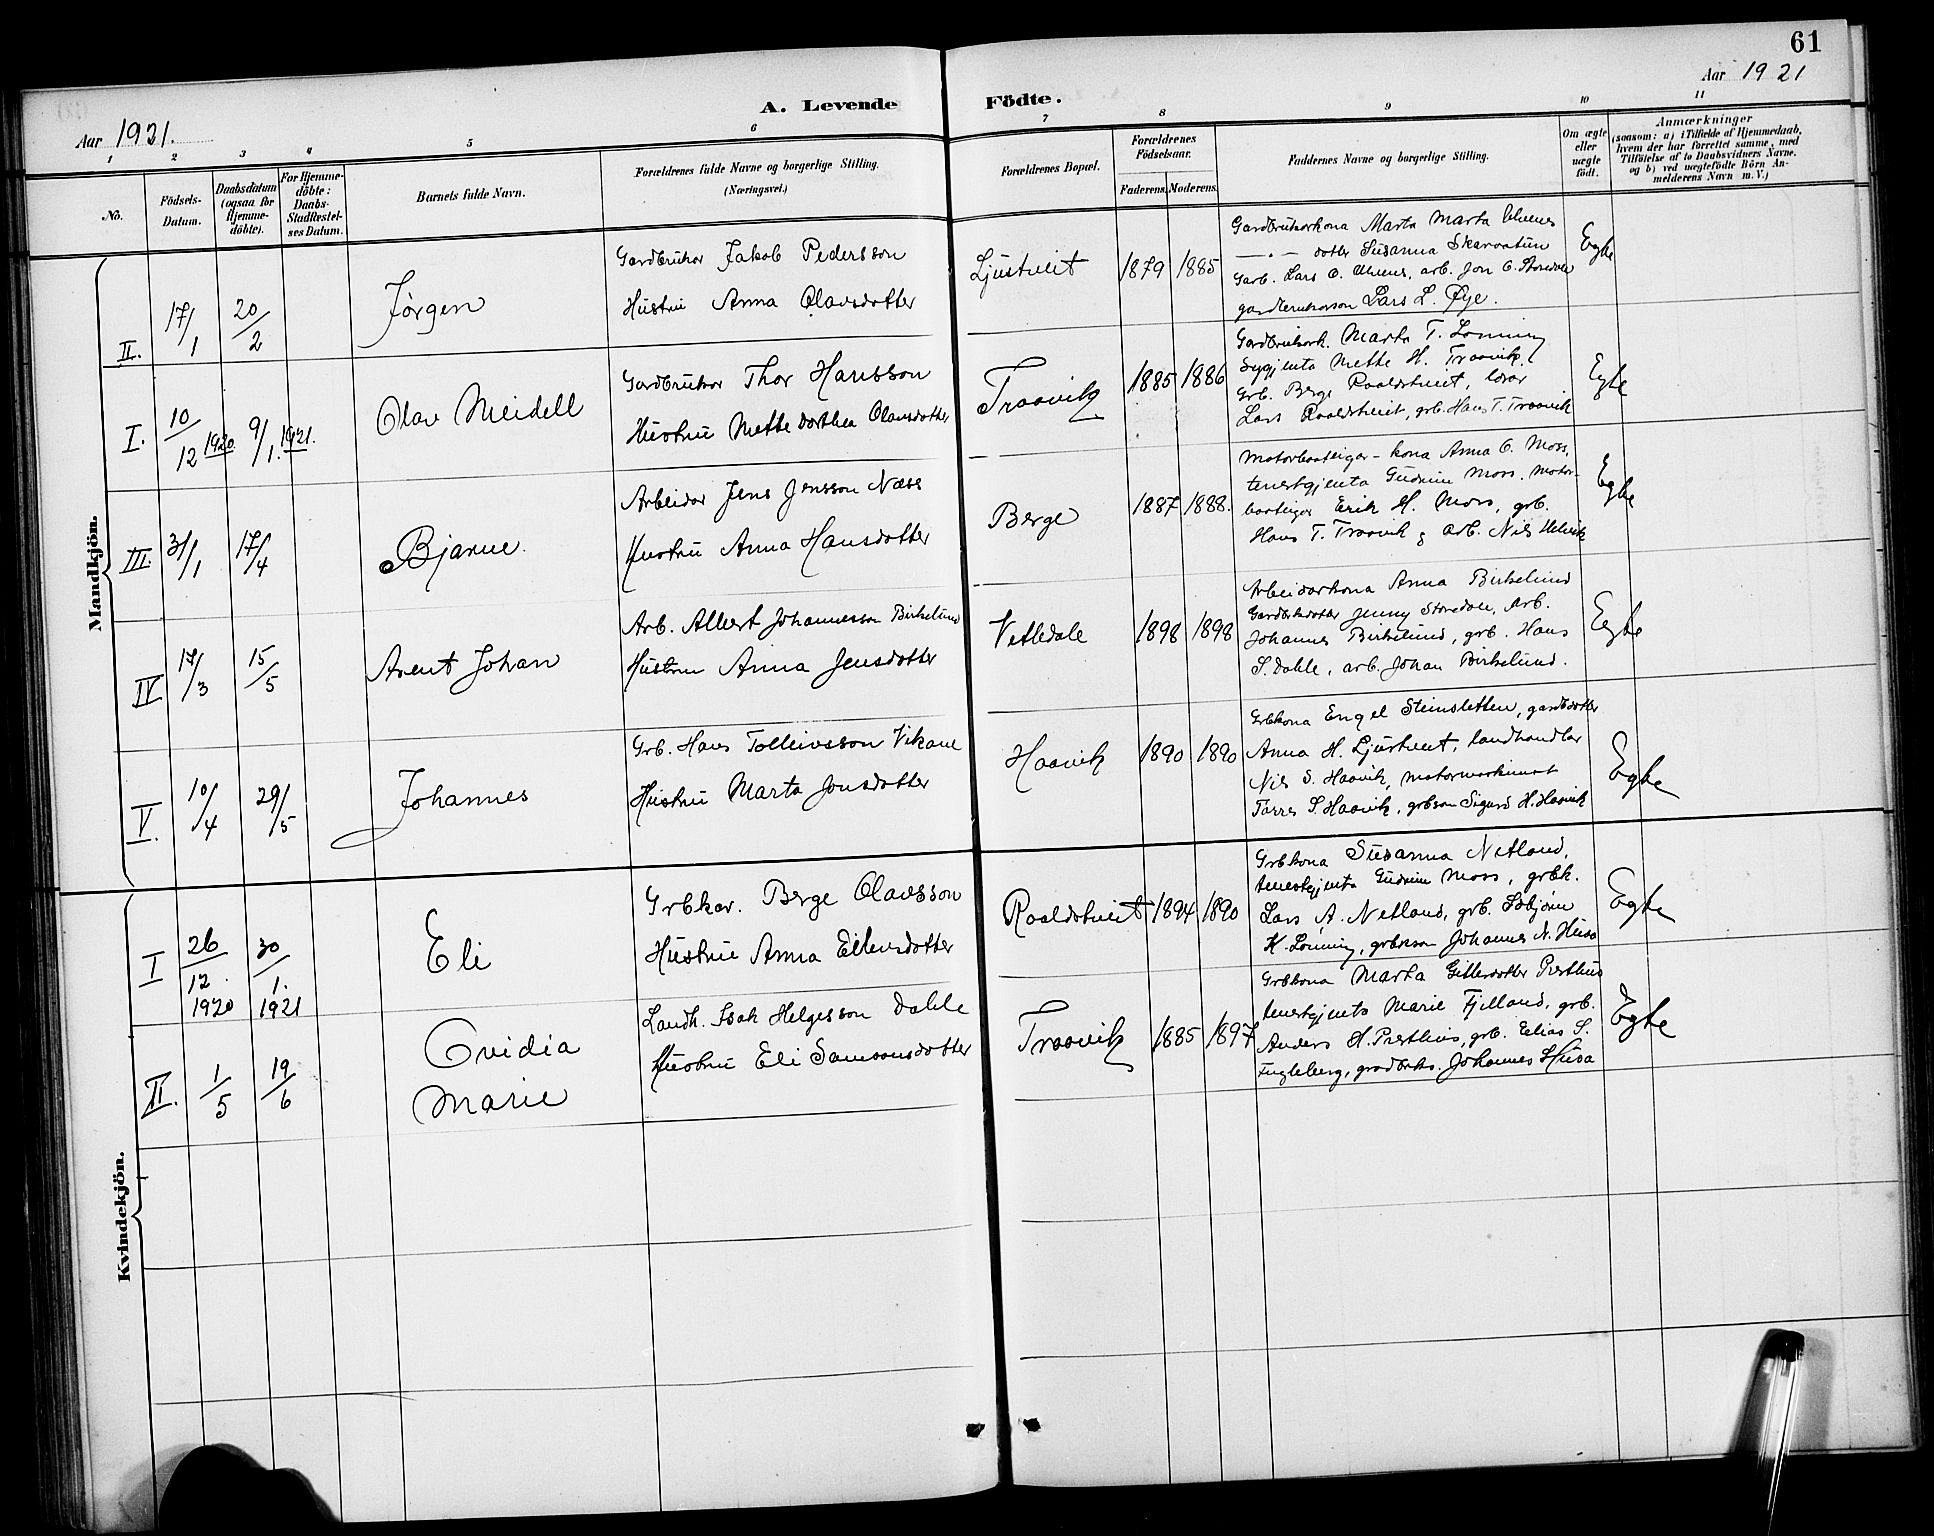 61
Aar 1921
A. Levende Födte.
Aar 1921.
1 2 3 4 5 6 7 8 9 10 11
No.
Födsels-Datum.
Daabsdatum (ogsaa for Hjemme-döbte).
For Hjemme-döbte: Daabs-Stadfæstel-ses Datum.
Barnets fulde Navn.
Forældrenes fulde Navne og borgerlige Stilling.
(Næringsvei.)
Forældrenes Bopæl.
Forældrenes Födselsaar.
Faderens. Moderens.
Faddernes Navne og borgerlige Stilling.
Om ægte eller uægte födt.
Anmærkninger
(saasom: a) i Tilfælde af Hjemmedaab,
hvem der har forrettet samme, med
Tilföielse af to Daabsvidners Navne.
og b) ved uægtefödte Börn An-
melderens Navn m. V.)
Mandkjön.
II. 17/1 20/2 Jørgen
Gardbrukar Jakob Pedersson
Hustru Anna Olavsdotter
Ljustveit 1879 1885
Gardbrukarkona Marta Marta
— „ — dotter Susanna Skarvatun
Garb. Lars O. arb. Jon O. Storedale
gardbrukarson Lars L. Øye.
Egte
I. 10/12 1920. 9/1. 1921. Olav Meidell
Gardbrukar Thor Hansson
Hustru Mette Dorthea Olavsdotter
Traavik 1885 1886
Gardbrukark. Marta T. Lønning
Sygjenta Mette H. Traavik,
Grb. Berge Raaldstveit, lærar
Lars Raaldstveit, grb. Hans T. Traavik
Egte
III. 31/1 17/4 Bjarne.
Arbeidar Jens Jensson Næss
Hustru Anna Hansdotter
Berge 1887 1888.
Motorbaateigar-kona Anna O. Moss,
tenestgjenta Gudrun Moss, motor-
baateigar Erik H. Moss, grb.
Hans T. Traavik & arb. Nils Helvik
Egte
IV 17/3 15/5 Arent Johan
Arb. Albert Johannesson Birkelund
Hustru Anna Jensdotter
Vetledale 1898 1898
Arbeidarkona Anna Birkelund
Gardbrdotter Jenny Storedale, Arb.
Johannes Birkelund, grb. Hans
S. Dahle, arb. Johan Birkelund.
Egte
V. 10/4 29/5 Johannes
Grb. Hans Tolleivsson Vikane
Hustru Marta Jonsdotter
Haavik 1890 1890
Grbkona Engel Steinsletten, gardbdotter
Anna H. Ljustveit, landhandlar
Nils S. Haavik, motorverkimat
Torres S. Haavik, grbson Sigurd H. Haavik
Egte
Kvindekjön.
I 26/12. 1920 30/1. 1921 Eli
Grbkar. Berge Olavsson
Hustru Anna Ellensdotter
Raaldstveit 1894 1890
Grbkona Susanna Netland,
tenestgjenta Gudrun Moss, grbk.
Lars A. Netland, grb. Asbjørn
K. Lønning, grbrson Johannes N. Husa
Egte
II. 1/5 19/6 Ovidia
Marie
Landh. Isak Helgesson Dahle
Hustru Eli Samsonsdotter
Traavik 1885 1897
Grbkona Marta Gitlesdotter Presthus
tenestgjenta Marie Fjelland, grb.
Anders H. Presthus, grb. Elias S.
Fugleberg, gradbrks. Johannes Husa
Egte